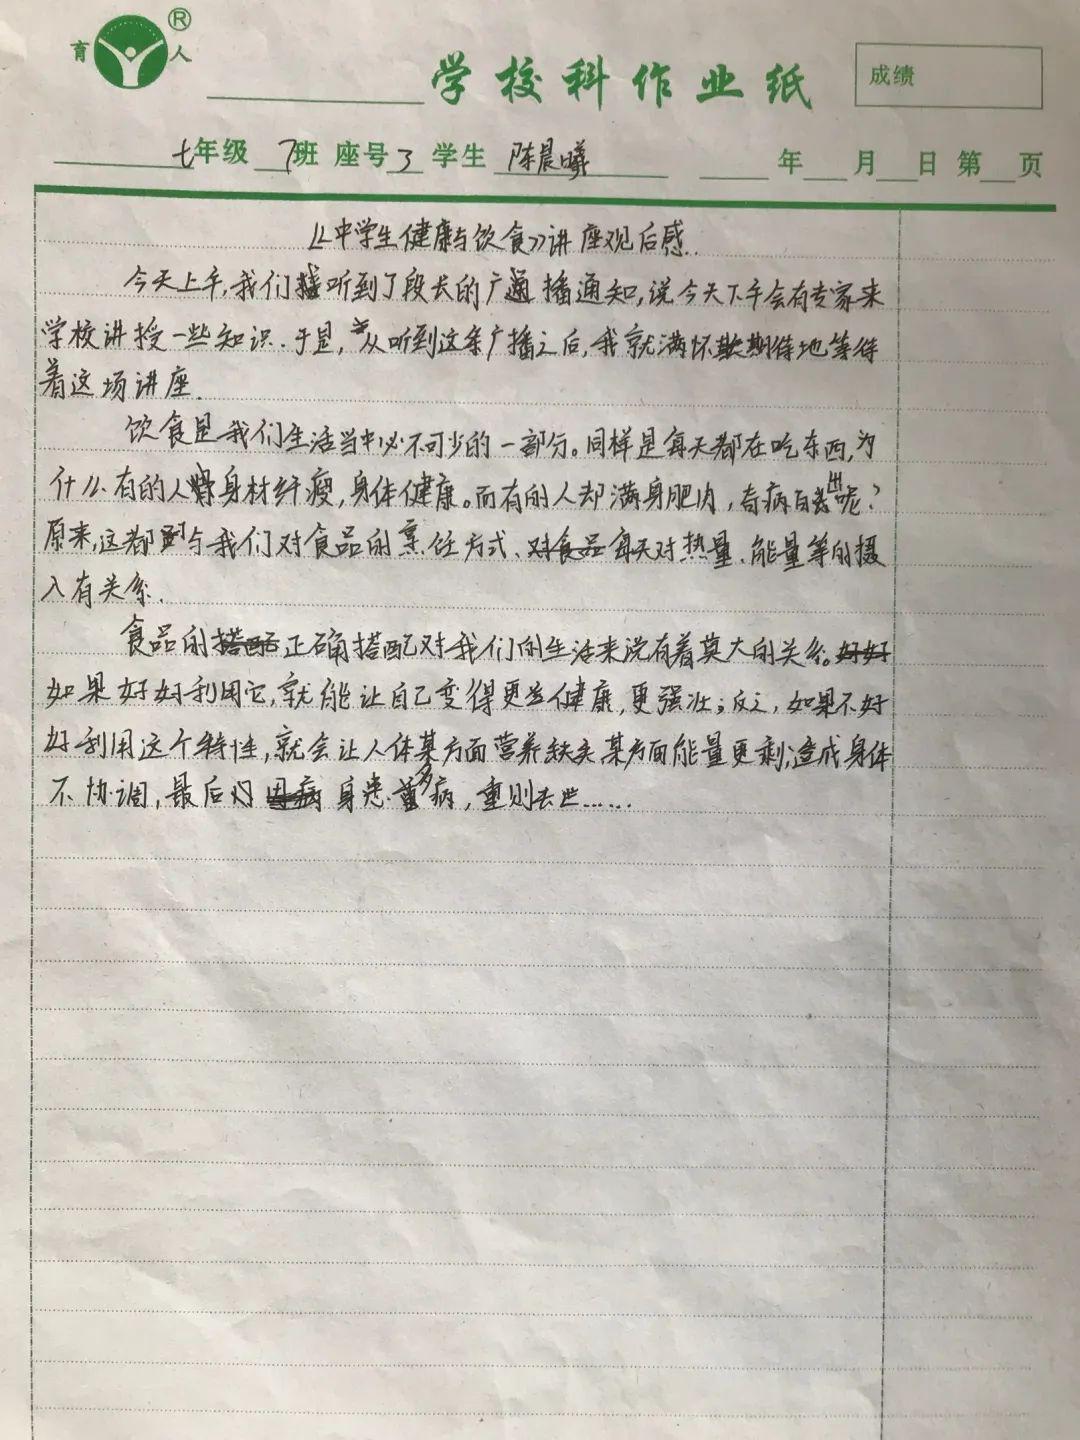 育人®
学校科作业纸
成绩
七年级 7班 座号3 学生 陈晨曦 年 月 日 第 页
《中学生健康与饮食》讲座观后感
今天上午,我们听到了段长的广播通知,说今天下午会有专家来
学校讲授一些知识.于是,从听到这条广播之后,我就满怀期待地等待
着这场讲座.
饮食是我们生活当中必不可少的一部分。同样是每天都在吃东西,为
什么有的人身材纤瘦,身体健康。而有的人却满身肥肉,奇病百出呢?
原来,这都与我们对食品的烹饪方式、每天对热量、能量等的摄
入有关系.
食品的正确搭配对我们的生活来说有着莫大的关系。
如果好好利用它,就能让自己变得更健康,更强壮;反之,如果不好
好利用这个特性,就会让人体某方面营养缺失某方面能量更剩,造成身体
不协调,最后身患多病,重则去世……